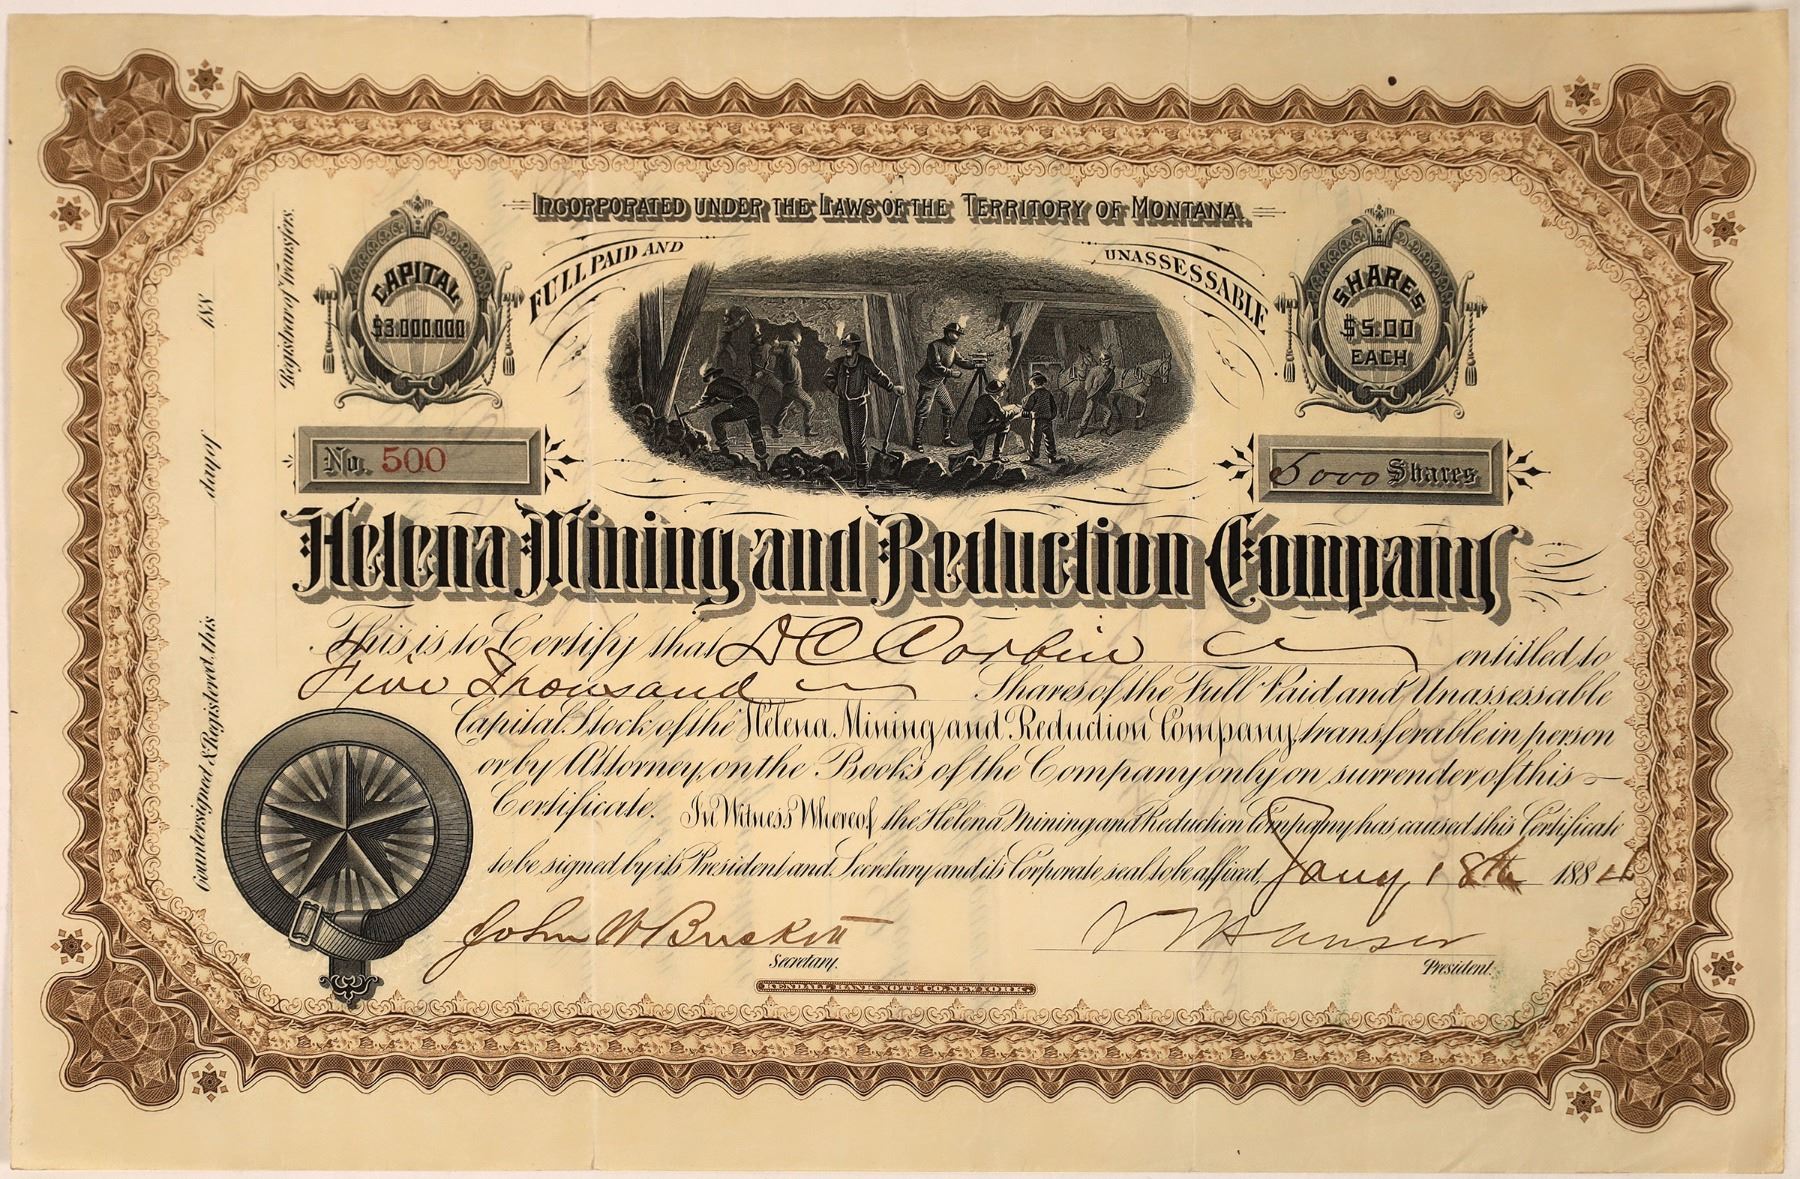 INCORPORATED UNDER THE LAWS OF THE TERRITORY OF MONTANA.
FULL PAID AND UNASSESSABLE
CAPITAL
$3.000.000
SHARES
$5.00
EACH
No. 500
5000 Shares
Helena Mining and Reduction Company
This is to Certify that D C Corbin entitled to
Five Thousand Shares of the Full Paid and Unassessable
Capital Stock of the Helena Mining and Reduction Company, transferable in person
or by Attorney, on the Books of the Company only on surrender of this
Certificate. In Witness Whereof the Helena Mining and Reduction Company has caused this Certificate
to be signed by its President and Secretary and its Corporate seal to be affixed, Jany 18th 1884
John W
Secretary.
President.
KENDALL BANK NOTE CO. NEW YORK.
Countersigned & Registered this day of 188
Registrar of Transfers.